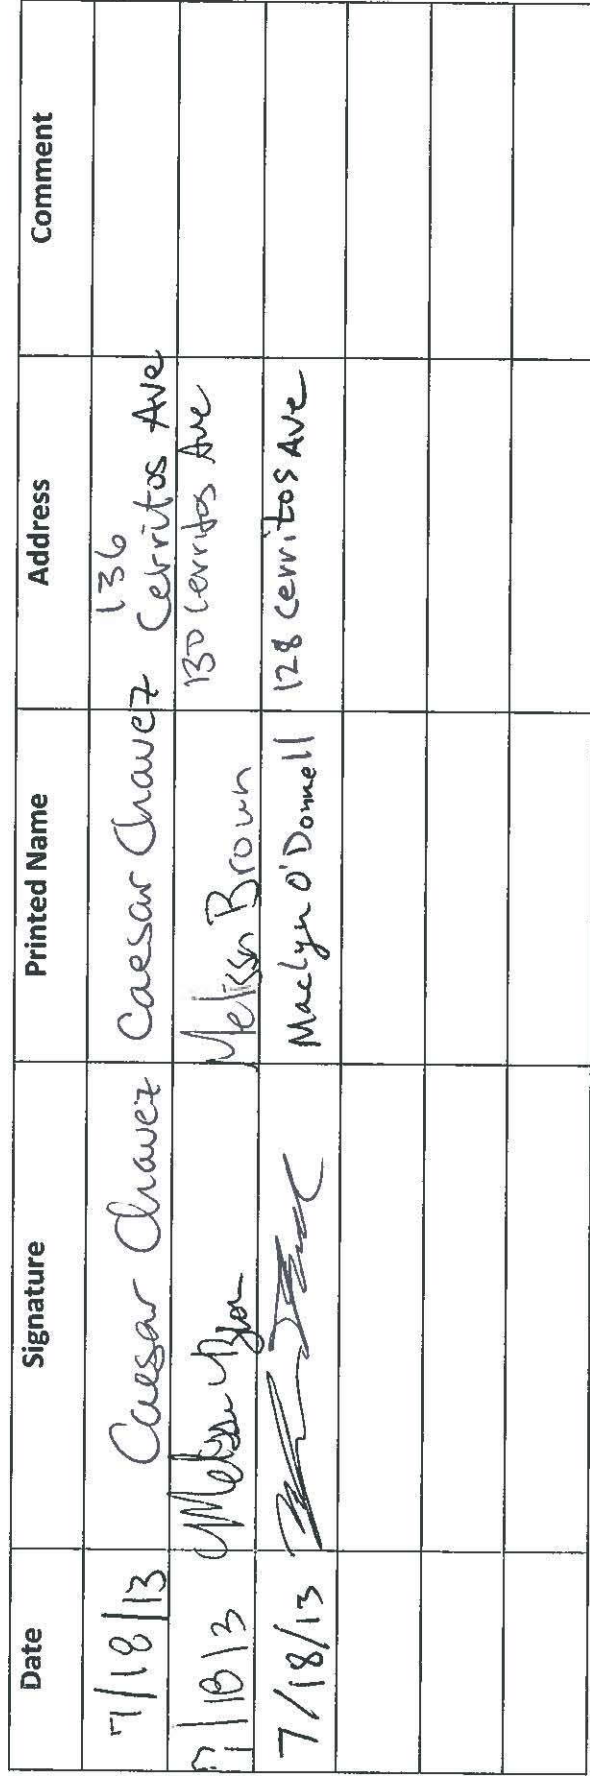 Date Signature Printed Name Address Comment
7/18/13 Caesar Chavez Caesar Chavez 136 Cerritos Ave
7/18/13 Melissa Brown Melissa Brown 130 Cerritos Ave
7/18/13 Maclyn O'Donnell 128 Cerritos Ave